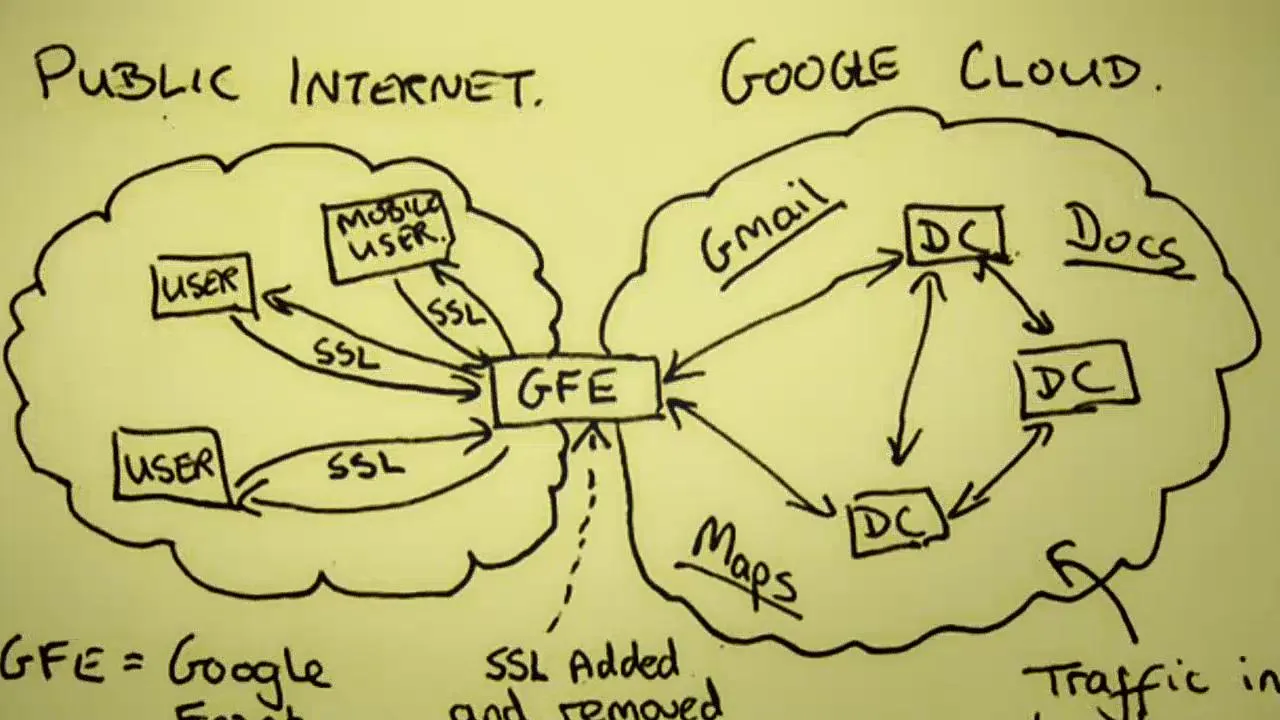 PUBLIC INTERNET.
GOOGLE CLOUD.
MOBILE
USER.
USER
SSL
SSL
USER
SSL
GFE
Gmail
DC
Docs
DC
DC
Maps
GFE = Google
Front
SSL Added
and removed
Traffic in